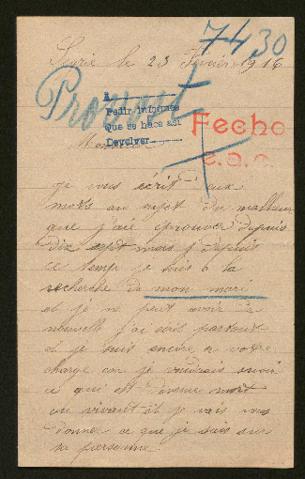 7430
le 23 Février 1916
A
Pedir informes
Que se hace así
Devolver
Fecho
Je vous écrit aux
mots au sujet du malheur
que j'aie éprouver depuis
dix sept mois depuis
ce temps je suis à la
recherche de mon mari
et je ne peut avoir de
nouvelle j'ai écris partout
et je suis encire a votre
charge car je voudrais savoir
ce qui est devenue mort
ou vivant et je vais vous
donner ce que je sais sur
sa personne